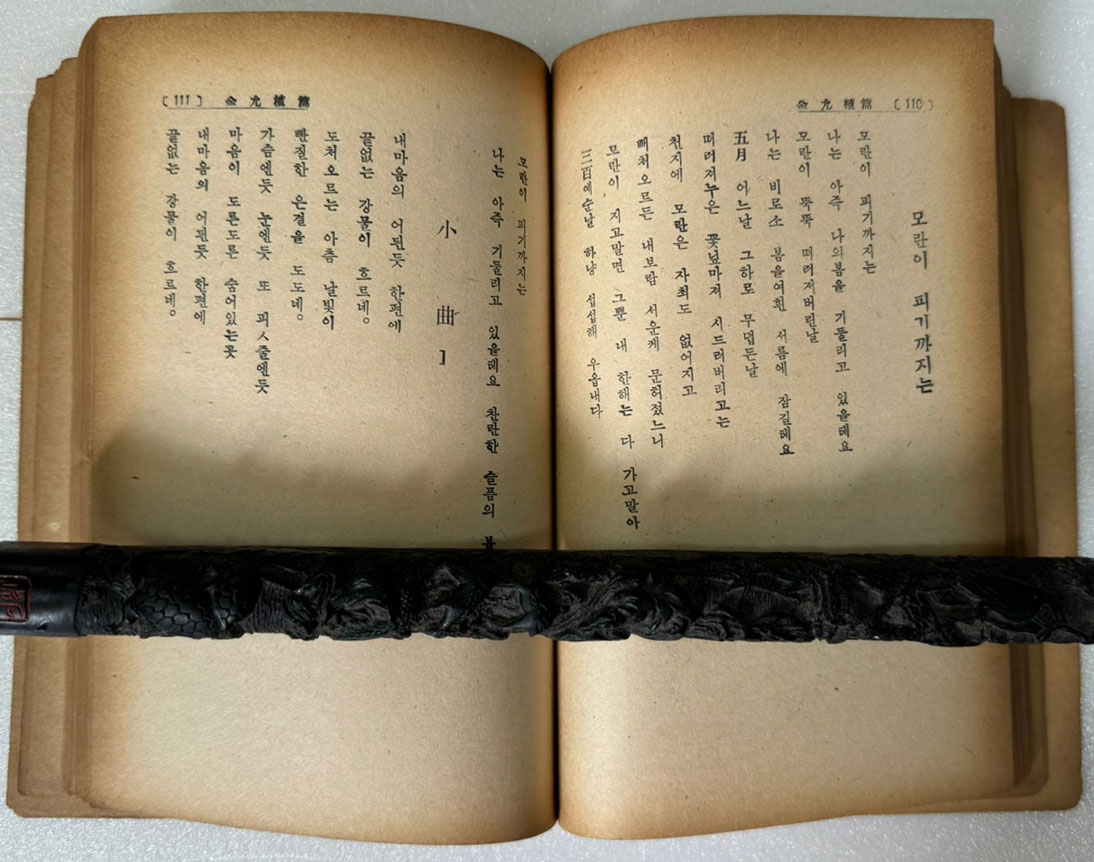 金允植篇 〔110〕
모란이 피기까지는
모란이 피기까지는
나는 아즉 나의봄을 기둘리고 있을테요
모란이 뚝뚝 떠러저버린날
나는 비로소 봄을여흰 서름에 잠길테요
五月 어느날 그하로 무덥든날
떠러져누은 꽃닢마져 시드러버리고는
천지에 모란은 자최도 없어지고
뻐처오르든 내보람 서운케 문허졌느니
모란이 지고말면 그뿐 내 한해는 다 가고말아
三百예순날 하냥 섭섭해 우옵내다
모란이 피기까지는
나는 아즉 기둘리고 있을테요 찬란한 슬픔의
〔111〕 金允植篇
小曲 1
내마음의 어된듯 한편에
끝없는 강물이 흐르네。
도처오르는 아츰 날빛이
빤질한 은결을 도도네。
가슴엔듯 눈엔듯 또 피ㅅ줄엔듯
마음이 도른도른 숨어있는곳
내마음의 어된듯 한편에
끝없는 강물이 흐르네。